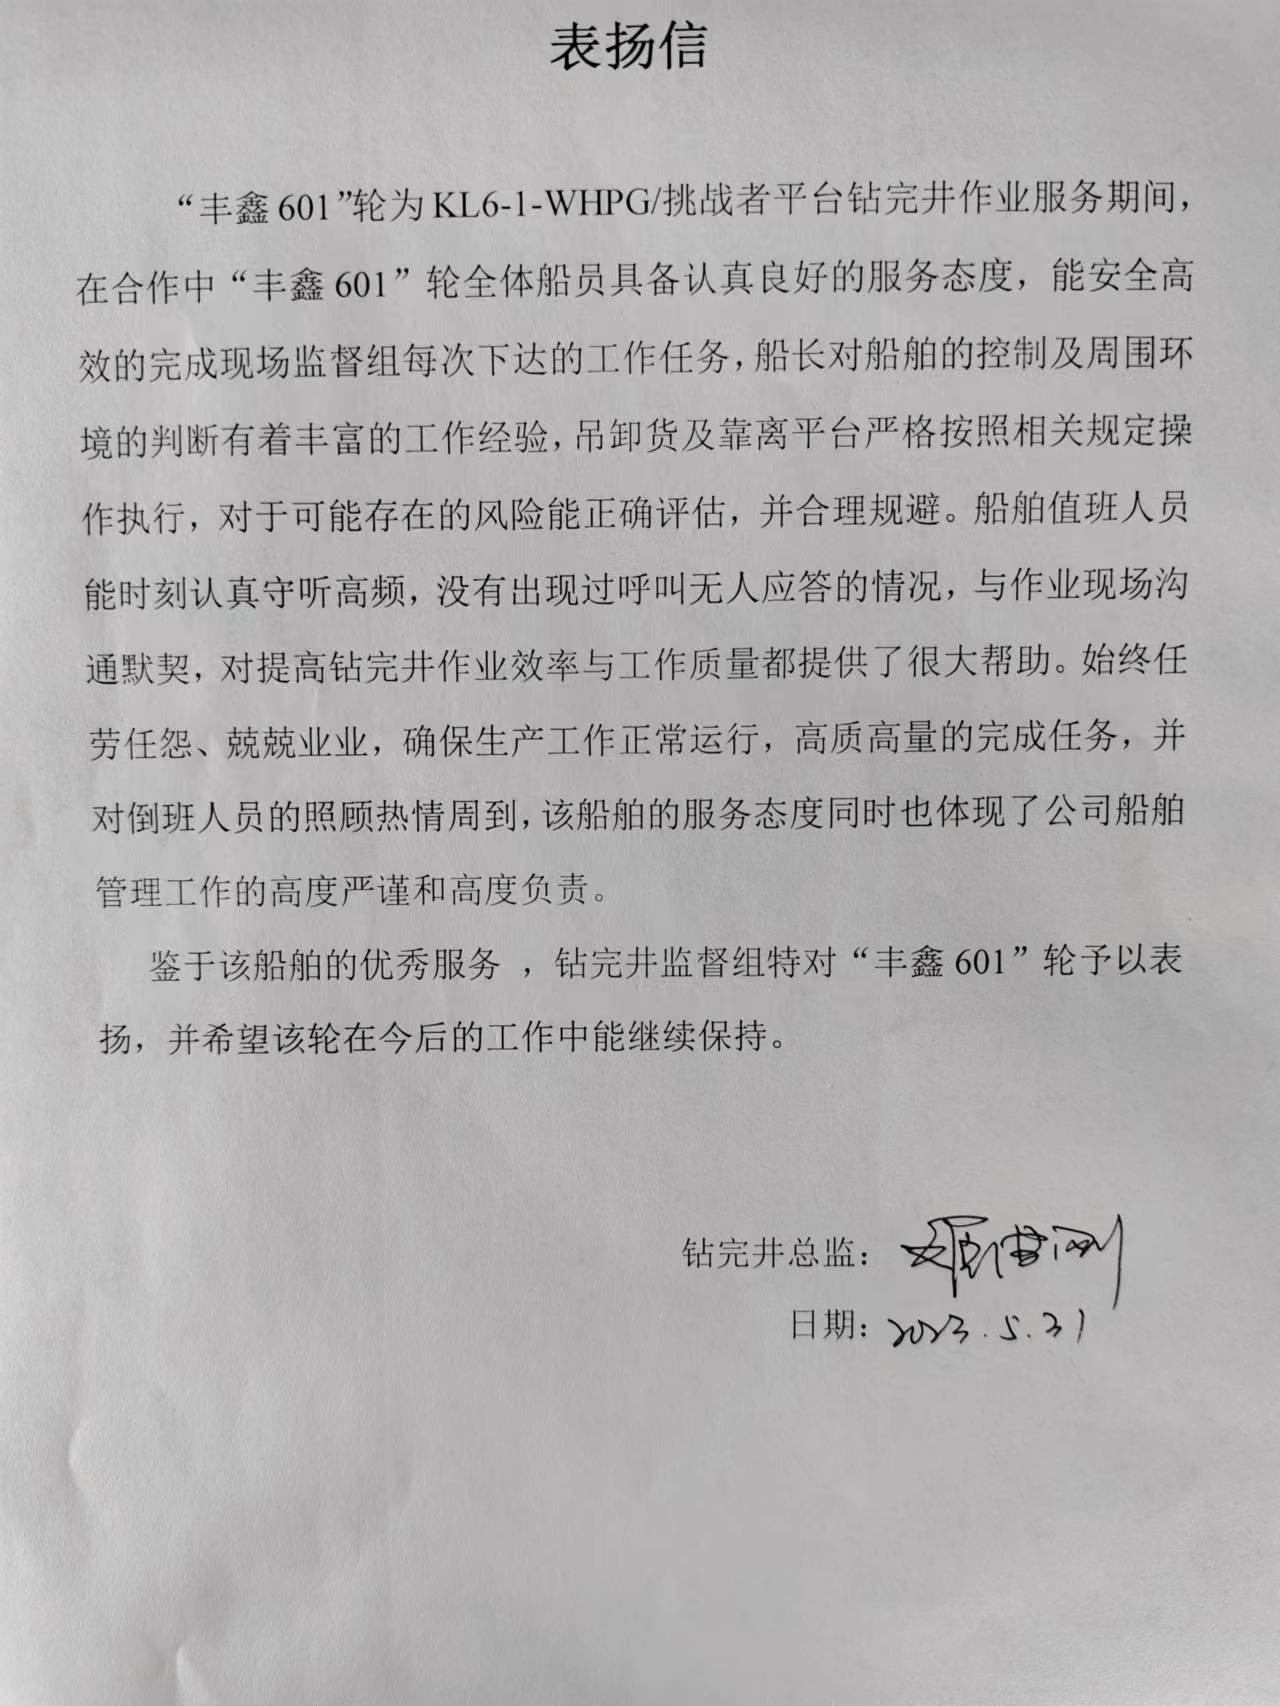 表扬信
“丰鑫 601”轮为 KL6-1-WHPG/挑战者平台钻完井作业服务期间，
在合作中“丰鑫 601”轮全体船员具备认真良好的服务态度，能安全高
效的完成现场监督组每次下达的工作任务，船长对船舶的控制及周围环
境的判断有着丰富的工作经验，吊卸货及靠离平台严格按照相关规定操
作执行，对于可能存在的风险能正确评估，并合理规避。船舶值班人员
能时刻认真守听高频，没有出现过呼叫无人应答的情况，与作业现场沟
通默契，对提高钻完井作业效率与工作质量都提供了很大帮助。始终任
劳任怨、兢兢业业，确保生产工作正常运行，高质高量的完成任务，并
对倒班人员的照顾热情周到，该船舶的服务态度同时也体现了公司船舶
管理工作的高度严谨和高度负责。
鉴于该船舶的优秀服务 ，钻完井监督组特对“丰鑫 601”轮予以表
扬，并希望该轮在今后的工作中能继续保持。
钻完井总监：
日期：2023.5.31